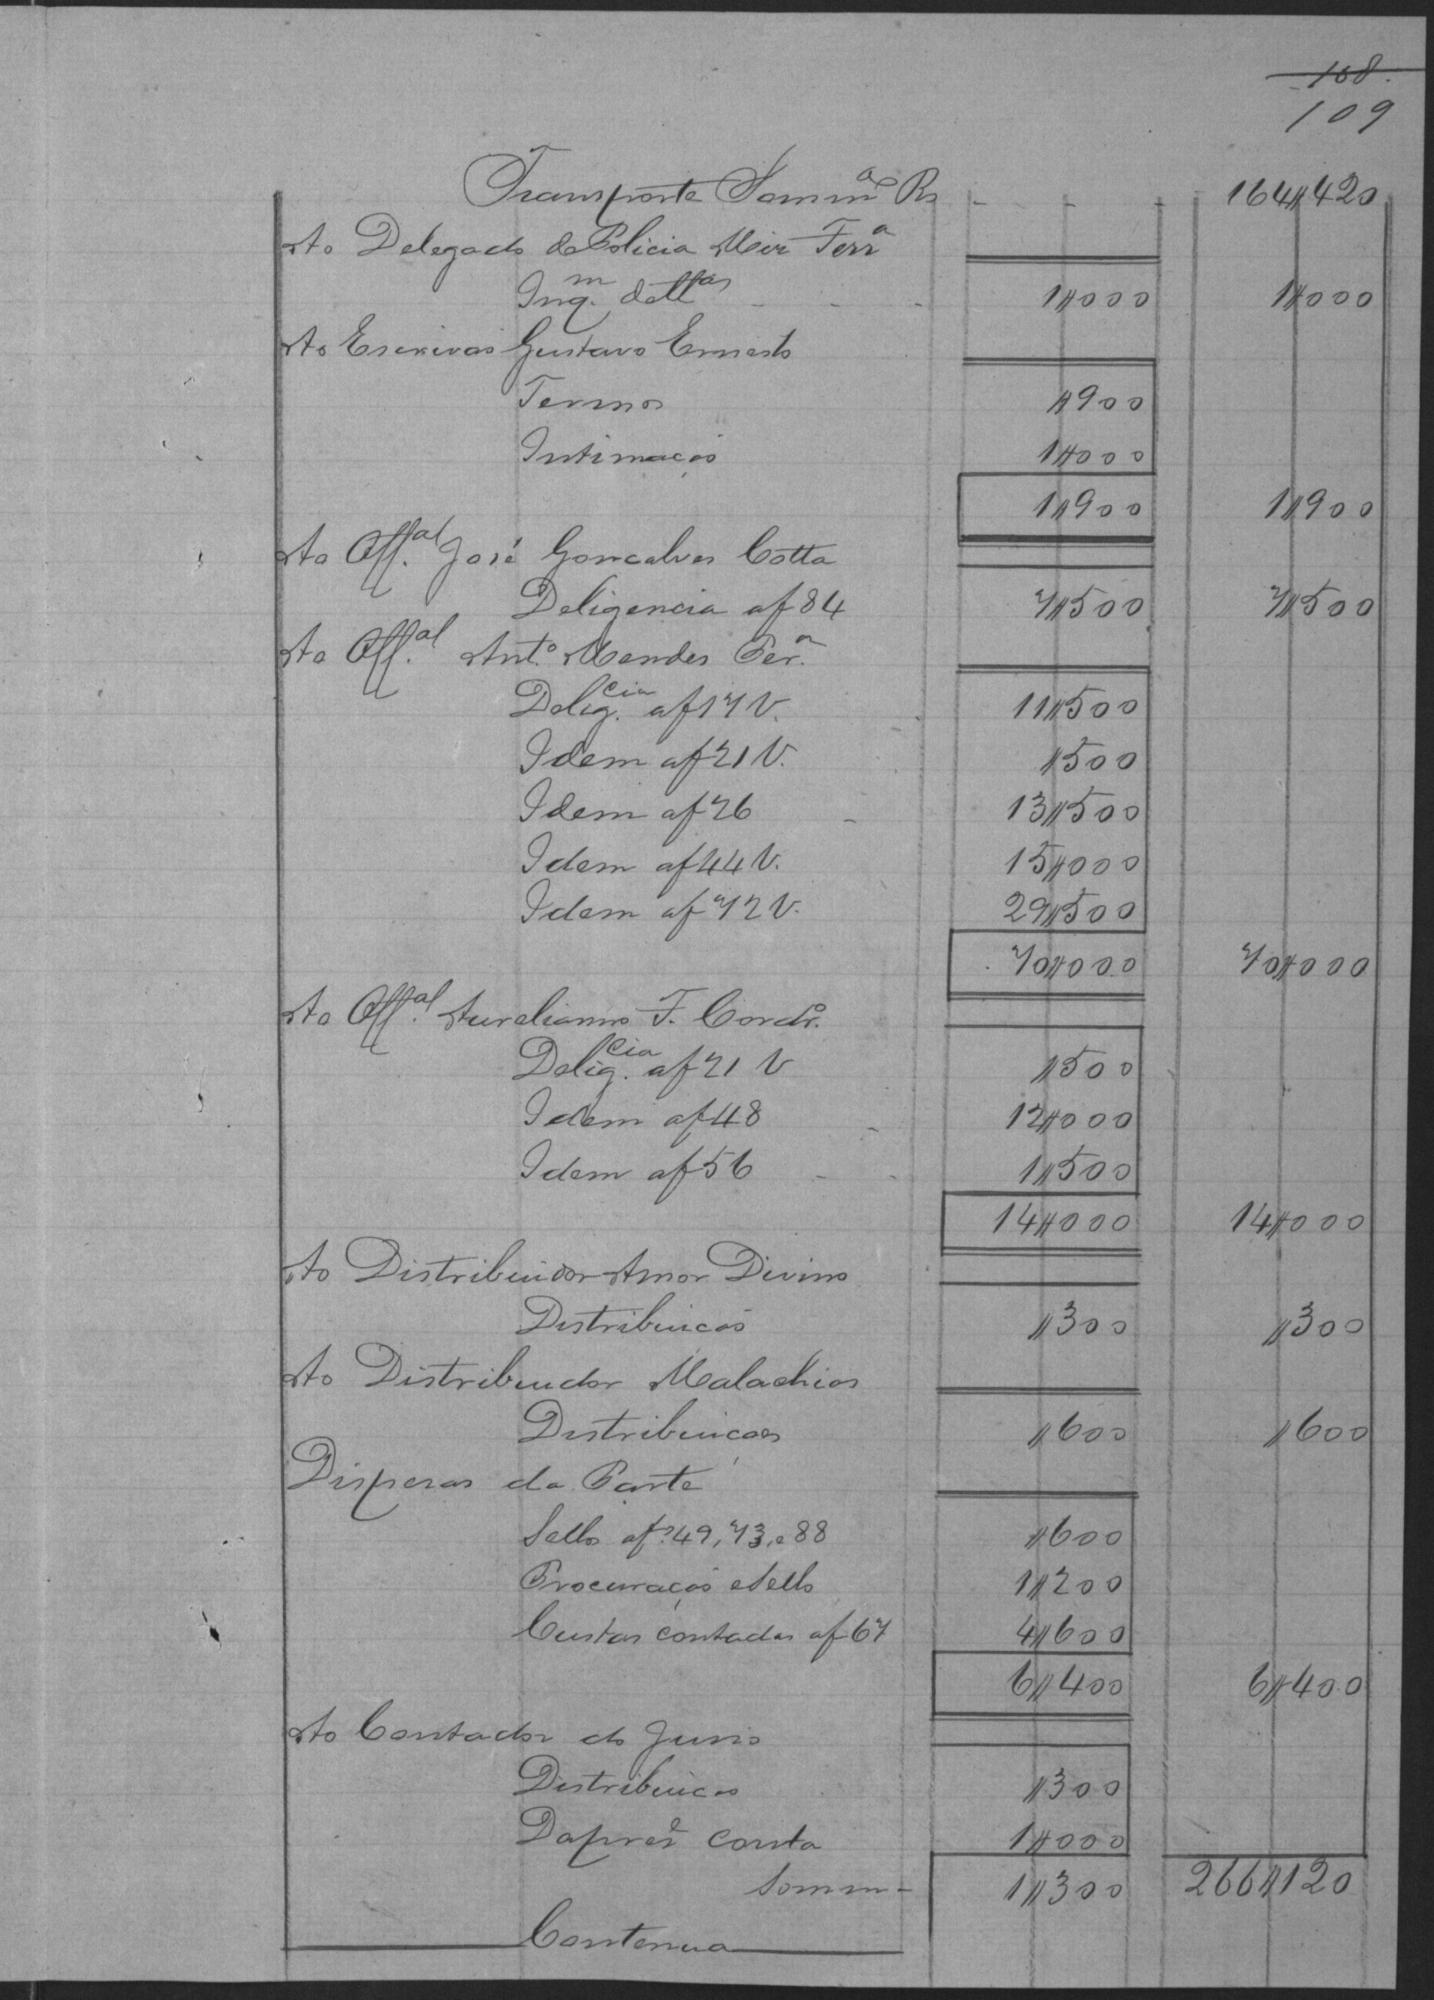 108.
109
Transporte Somm as Rs - - - 164#420
Ao Delegado de Policia Mir Ferrª
Inq.m dettas - - - 1#000 1#000
Ao Escrivaõ Gustavo Ernesto
Termos #900
Intimaçoẽs 1#000
1#900 1#900
Ao Off.al José Gonçalves Cotta
Deligencia af 84 7#500 7#500
Ao Off.al Ant.º Mendes Per.ª
Delig.cia af 17 V. 11#500
Idem af 21 V. #500
Idem af 26 - 13#500
Idem af 44 V. 15#000
Idem af 72 V. 29#500
70#000 70#000
Ao Off.al Aureliano F. Cordr.º
Delig.cia af 21 V #500
Idem af 48 - 12#000
Idem af 56 - - 1#500
14#000 14#000
Ao Distribuidor Amor Divino
Distribuicaõ #300 #300
Ao Distribuidor Malachias
Distribuiçoes #600 #600
Dispesas da Parte
Sello af.s 49, 73, e 88 #600
Procuraçaõ e Sello 1#200
Custas contadas af 67 4#600
6#400 6#400
Ao Contador do Juiso
Distribuicaõ #300
Da pres.e conta 1#000
Somm - 1#300 266#120
Contenua